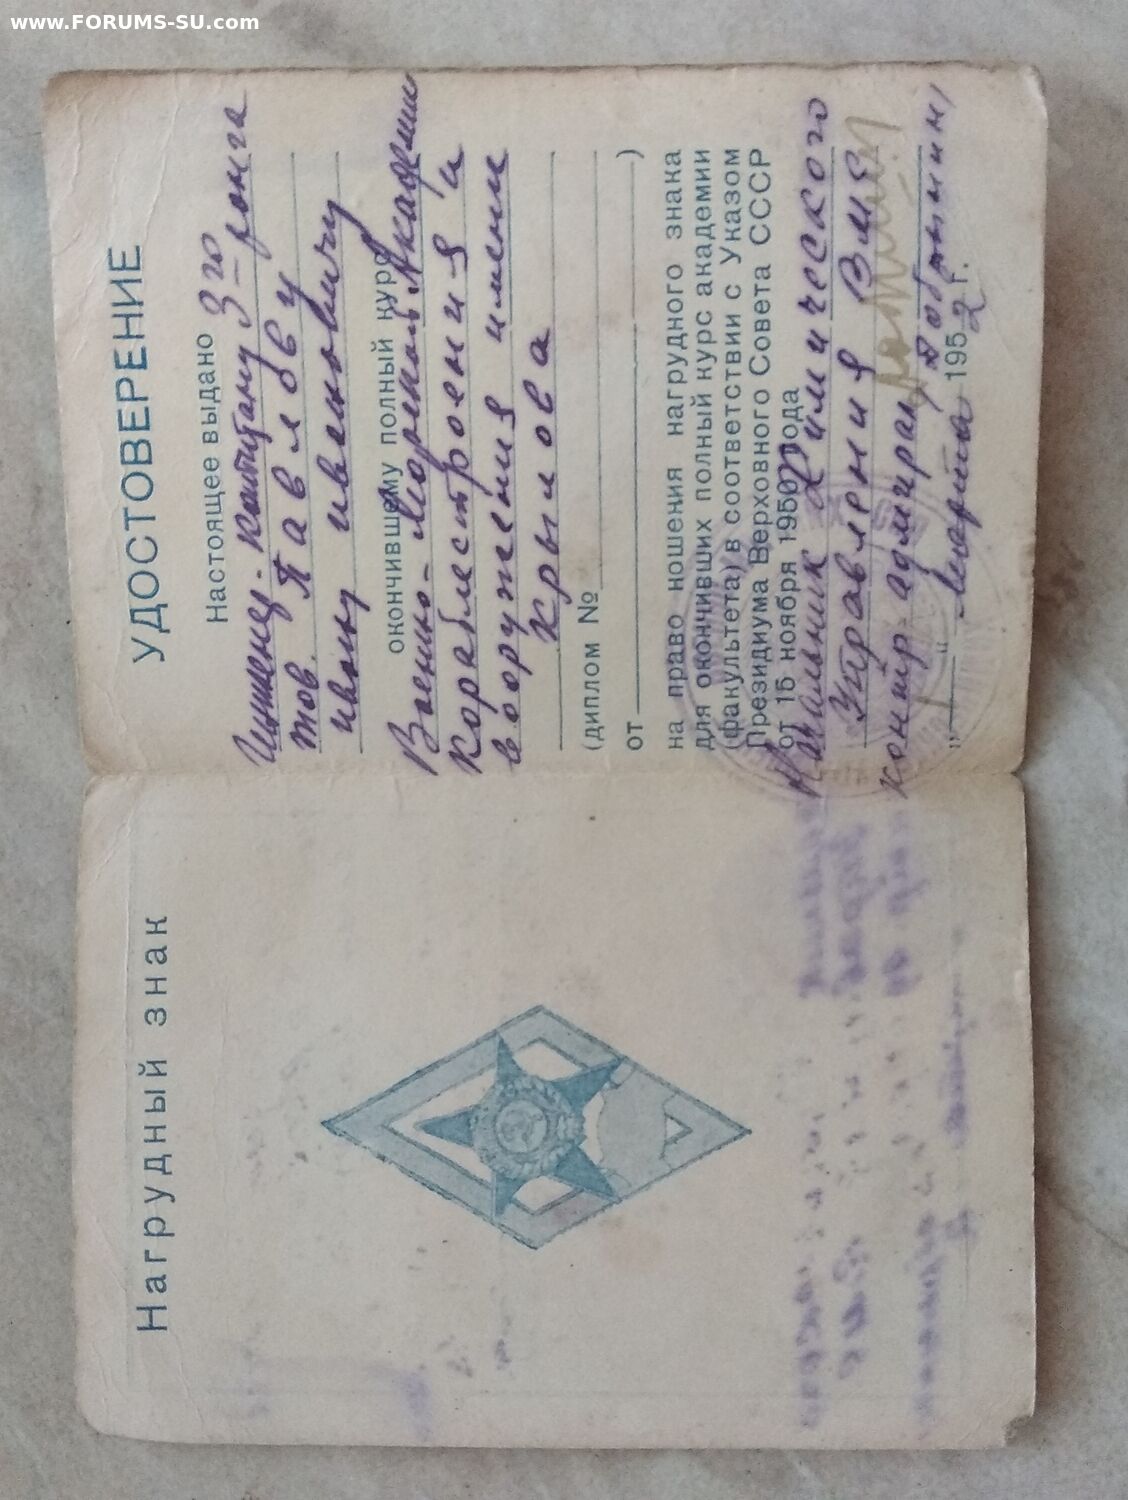 www.FORUMS-SU.com
Нагрудный знак
УДОСТОВЕРЕНИЕ
Настоящее выдано
Инженер-капитану 3го ранга
тов. Павлову
Ивану Ивановичу
окончившему полный курс
Военно-Морской Академии
кораблестроения и
вооружения имени
Крылова
(диплом №
от )
на право ношения нагрудного знака
для окончивших полный курс академии
(факультета) в соответствии с Указом
Президиума Верховного Совета СССР
от 15 ноября 1950 года
Начальник Химического
Управления ВМС
контр-адмирал
" " Марта 1952 г.